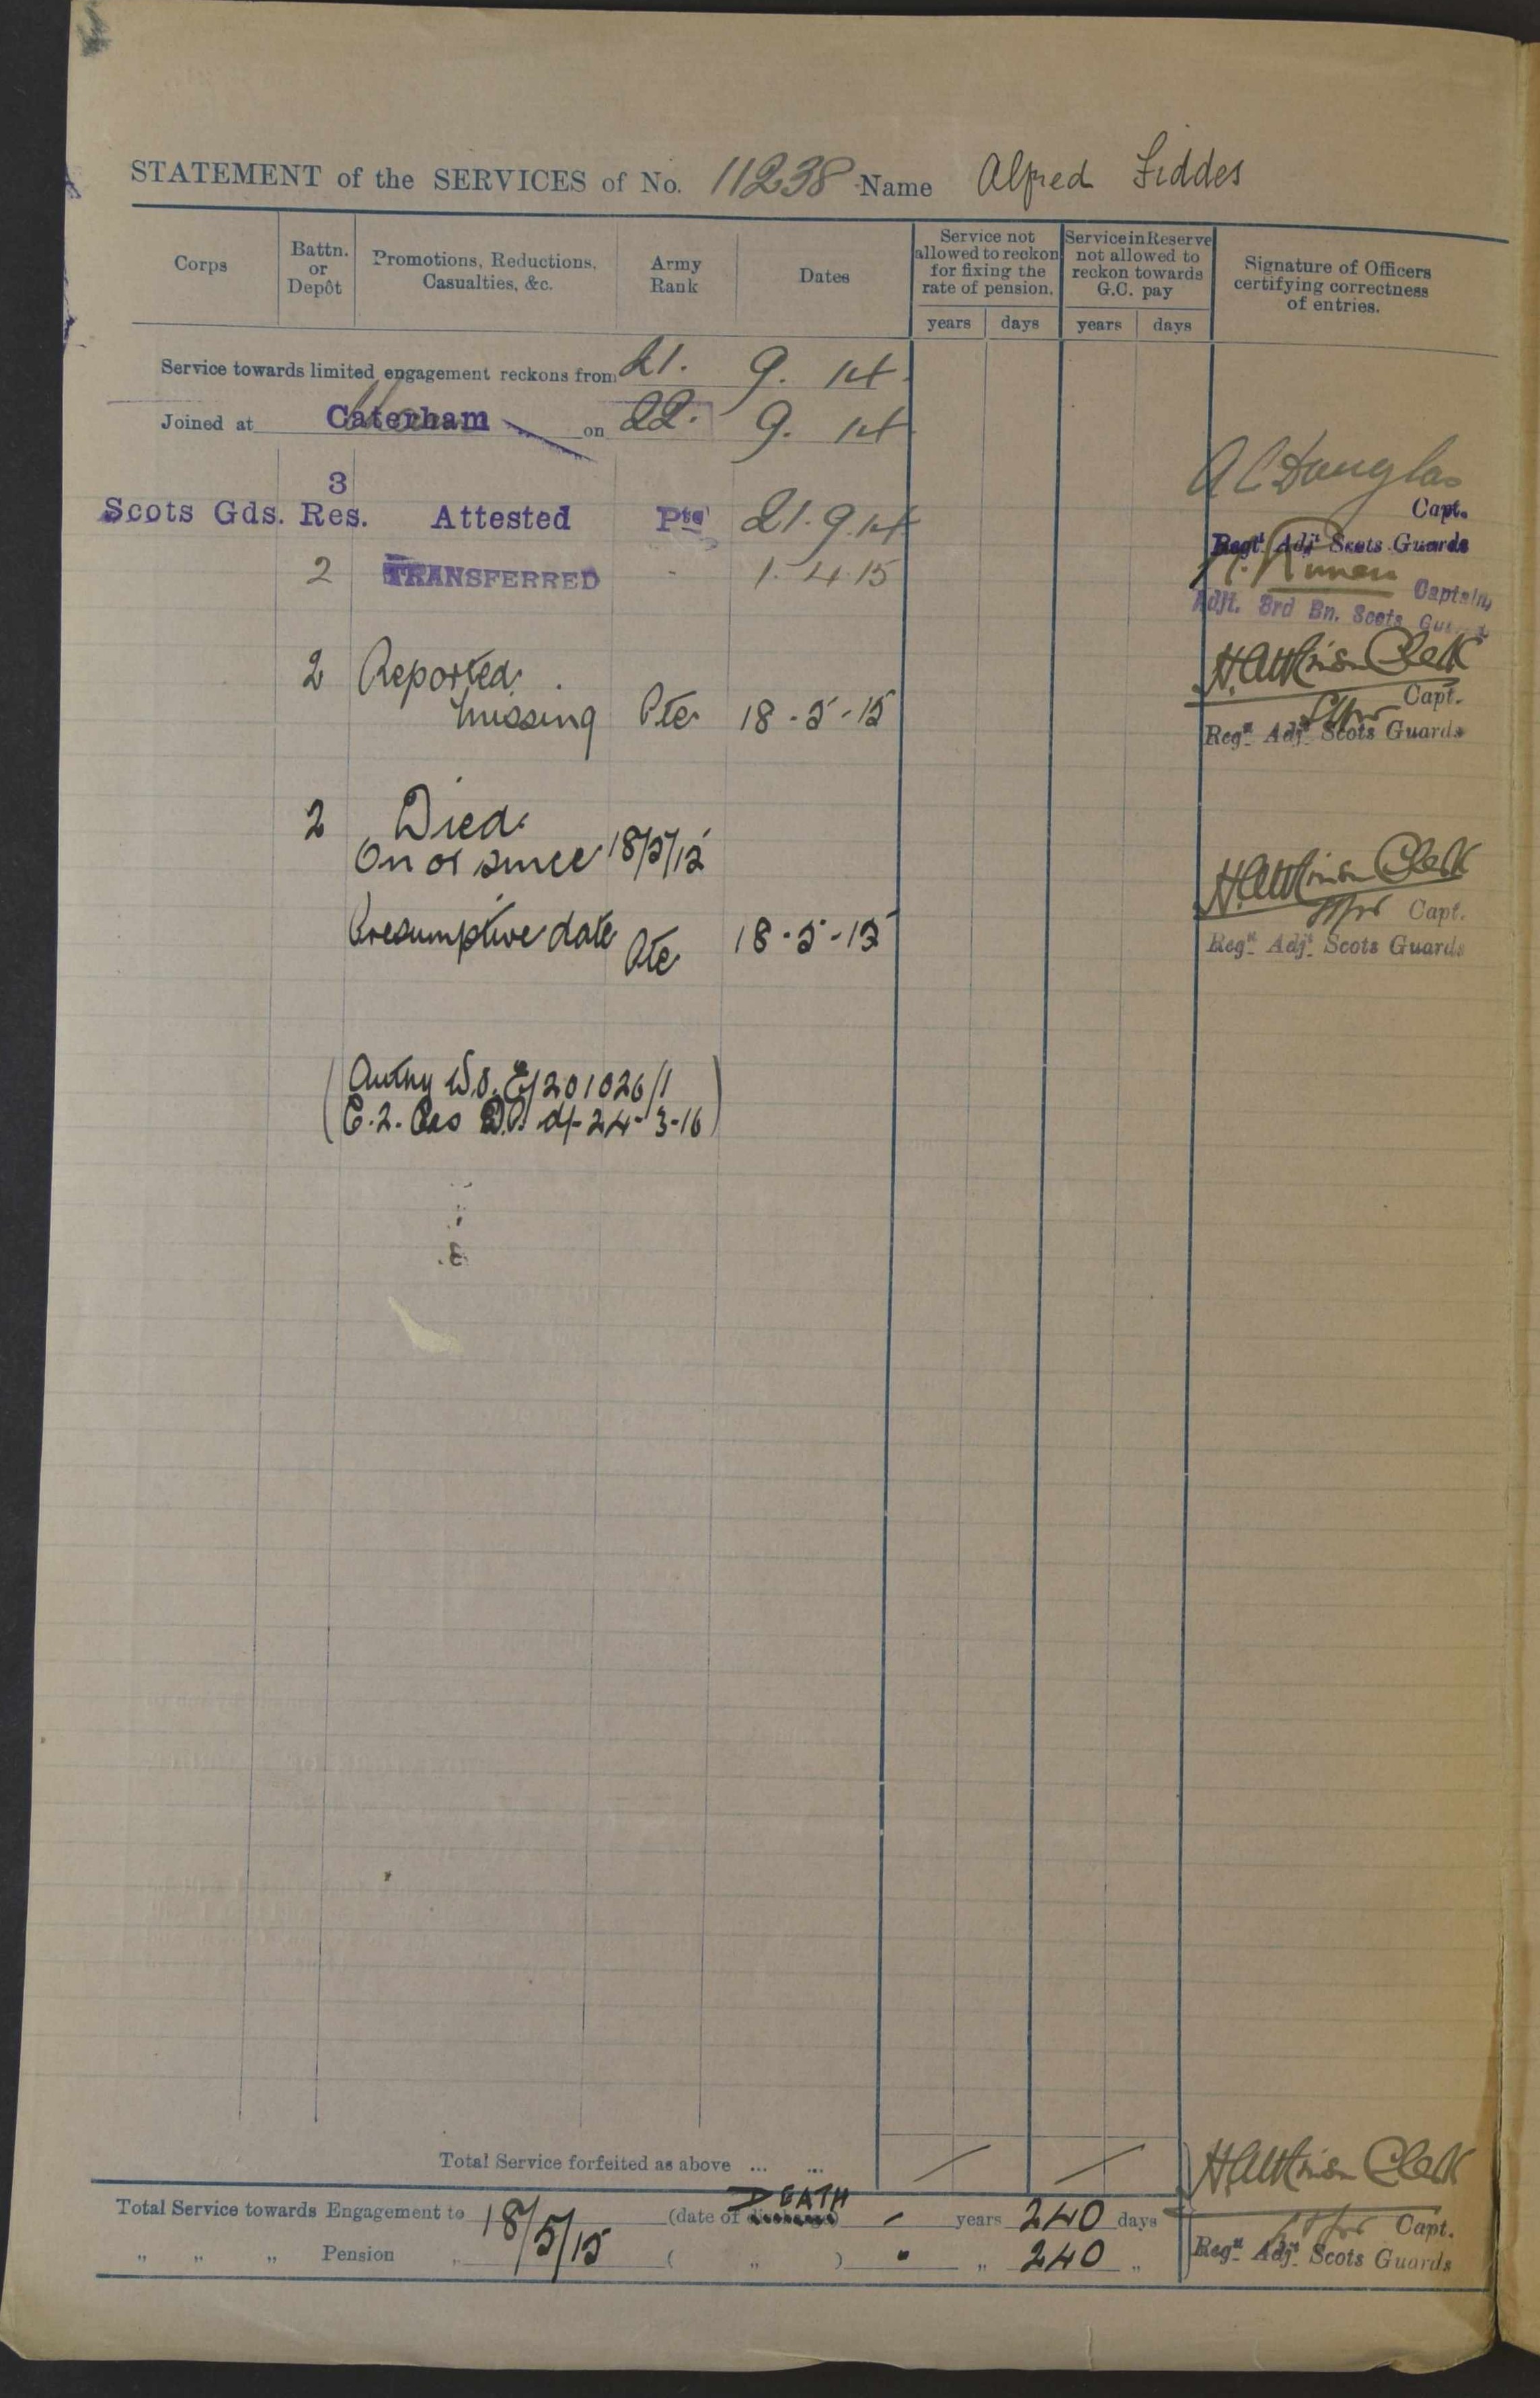 STATEMENT of the SERVICES of No. 11238 Name Alfred Fiddes
Corps
Battn. or Depôt
Promotions, Reductions, Casualties, &c.
Army Rank
Dates
Service not allowed to reckon for fixing the rate of pension.
years days
Service in Reserve not allowed to reckon towards G.C. pay
years days
Signature of Officers certifying correctness of entries.
Service towards limited engagement reckons from 21. 9. 14.
Joined at Caterham on 22. 9. 14.
A C Douglas
Capt.
Regtl Adjt Scots Guards
3
Scots Gds. Res. Attested Pte 21.9.14
2 TRANSFERRED - 1.4.15
Captain,
Adjt. 3rd Bn. Scots Guards
2 Reported
missing Pte 18-5-15
Capt.
for
Regtl Adjt Scots Guards
2 Died
On or since 18/5/15
Presumptive date Pte 18-5-15
for Capt.
Regtl Adjt Scots Guards
(Authy W.O. E/201026/1
C.2. Cas D/ d/- 24-3-16)
Total Service forfeited as above ... ... / /
Total Service towards Engagement to 18/5/15 (date of DEATH discharge) - years 240 days
" " " Pension " ( " ) " " 240 "
for Capt.
Regtl Adjt Scots Guards